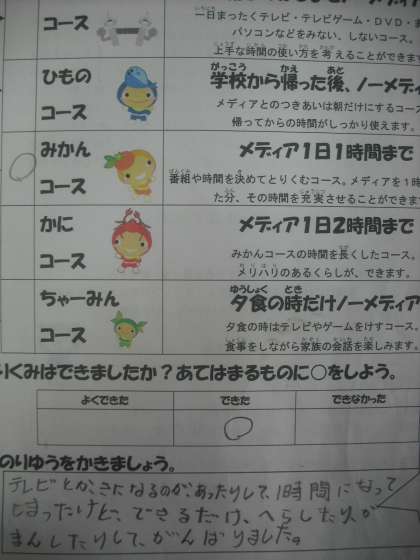 コース
一日まったくテレビ・テレビゲーム・DVD・
パソコンなどをみない、しないコース。
上手な時間の使い方を考えることができま
ひもの
コース
がっこう かえ あと
学校から帰った後、ノーメディ
メディアとのつきあいは朝だけにするコース
帰ってからの時間がしっかり使えます。
みかん
コース
メディア1日1時間まで
番組や時間を決めてとりくむコース。メディアを1時
た分、その時間を充実させることができま
かに
コース
メディア1日2時間まで
みかんコースの時間を長くしたコース。
メリハリのあるくらしが、できます。
ちゃーみん
コース
ゆうしょく とき
夕食の時だけノーメディア
夕食の時はテレビやゲームをけすコース。
食事をしながら家族の会話を楽しみます。
りくみはできましたか？あてはまるものに○をしよう。
よくできた できた できなかった
のりゆうをかきましょう。
テレビとか、きになるのが、あったりして、1時間になって
しまったけど、できるだけ、へらしたり、が
まんしたりして、がんばりました。